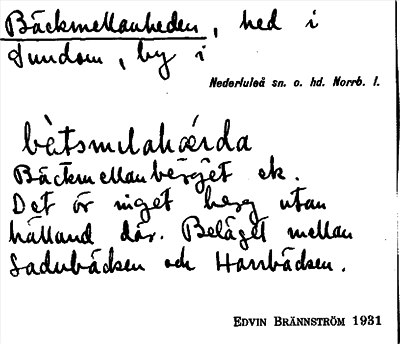 Bäckmellanheden, hed i
Sundom, by i
Nederluleå sn. o. hd. Norrb. l.
bètsmelahǽrda
Bäckmellanberget ek.
Det är inget berg utan
hälland där. Beläget mellan
Ladubäcken och Harrbäcken.
EDVIN BRÄNNSTRÖM 1931